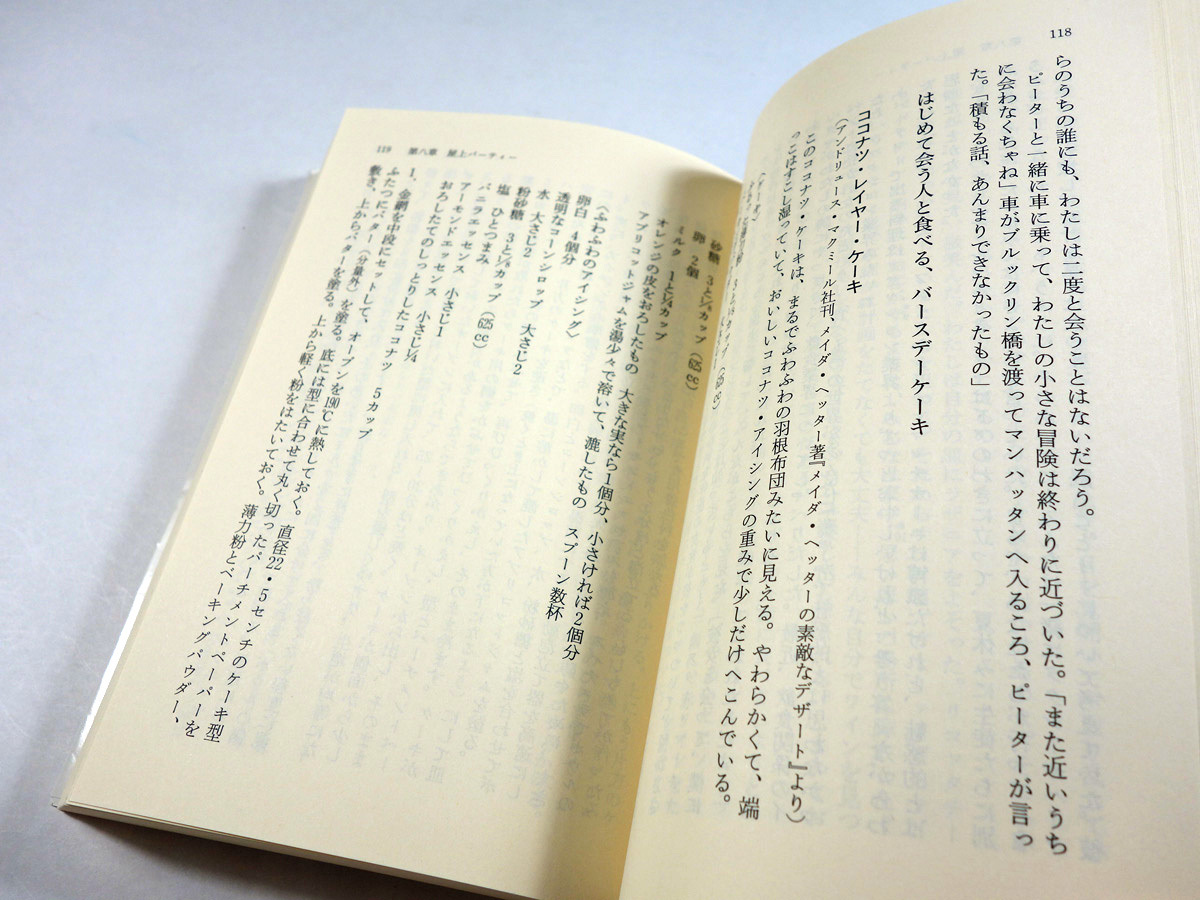 118
らのうちの誰にも、わたしは二度と会うことはないだろう。
ピーターと一緒に車に乗って、わたしの小さな冒険は終わりに近づいた。「また近いうち
に会わなくちゃね」車がブルックリン橋を渡ってマンハッタンへ入るころ、ピーターが言っ
た。「積もる話、あんまりできなかったもの」
はじめて会う人と食べる、バースデーケーキ
ココナツ・レイヤー・ケーキ
（アンドリュース・マクミール社刊、メイダ・ヘッター著『メイダ・ヘッターの素敵なデザート』より）
このココナツ・ケーキは、まるでふわふわの羽根布団みたいに見える。やわらかくて、端
っこはすこし湿っていて、おいしいココナツ・アイシングの重みで少しだけへこんでいる。
119 第八章 屋上パーティー
砂糖 3と⅛カップ（625cc）
卵 2個
ミルク 1と¼カップ
オレンジの皮をおろしたもの 大きな実なら1個分、小さければ2個分
アプリコットジャムを湯少々で溶いて、漉したもの スプーン数杯
〈ふわふわのアイシング〉
卵白 4個分
透明なコーンシロップ 大さじ2
水 大さじ2
粉砂糖 3と⅛カップ（625cc）
塩 ひとつまみ
バニラエッセンス 小さじ1
アーモンドエッセンス 小さじ¼
おろしたてのしっとりしたココナツ 5カップ
1. 金網を中段にセットして、オーブンを190℃に熱しておく。直径22・5センチのケーキ型
ふたつにバター（分量外）を塗る。底には型に合わせて丸く切ったパーチメントペーパーを
敷き、上からバターを塗る。上から軽く粉をはたいておく。薄力粉とベーキングパウダー、